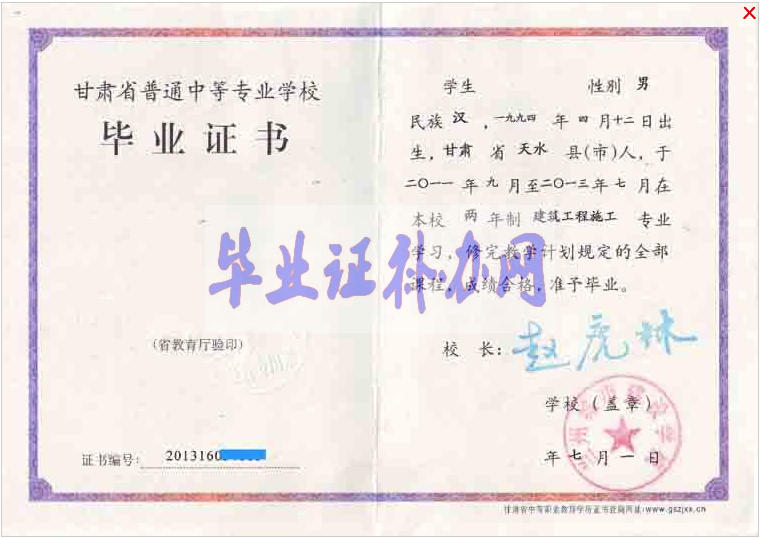 甘肃省普通中等专业学校
毕业证书
(省教育厅验印)
证书编号:
201316
学生 性别 男
民族 汉 , 一九九四 年 四 月十二日出
生, 甘肃 省 天水 县(市)人, 于
二〇一一 年 九 月至二〇一三年 七 月在
本校 两 年制 建筑工程施工 专业
学习, 修完教学计划规定的全部
课程, 成绩合格, 准予毕业。
毕业证补办网
校 长: 赵虎林
学校(盖章)
年 七 月 一 日
甘肃省中等职业教育学历证书查询网址:www.gszjxx.cn